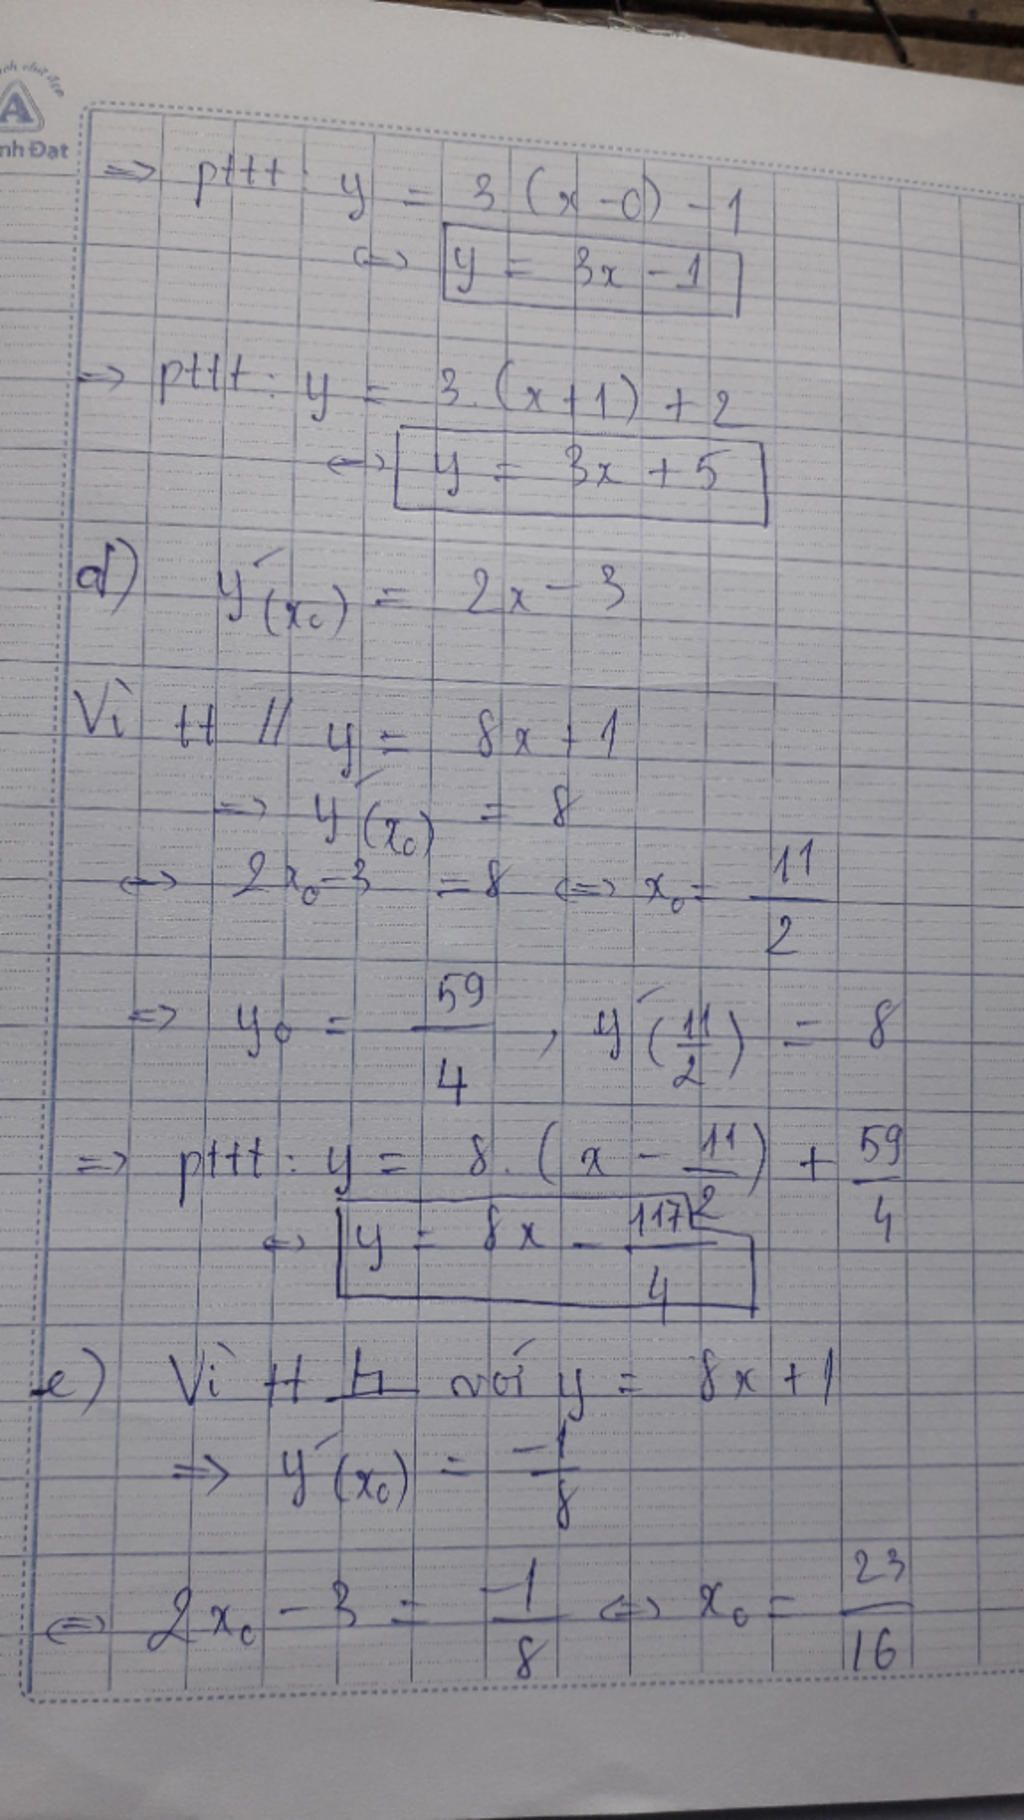 A
nh Đạt
=> pttt : y = 3 (x - 0) - 1
<=> y = 3x - 1
=> pttt : y = 3. (x + 1) + 2
<=> y = 3x + 5
d) y'(x₀) = 2x - 3
Vì tt // y = 8x + 1
=> y'(x₀) = 8
<=> 2x₀ - 3 = 8 <=> x₀ = 11/2
=> y₀ = 59/4 , y'(11/2) = 8
=> pttt : y = 8. (x - 11/2) + 59/4
<=> y = 8x - 117/4
e) Vì tt ⊥ với y = 8x + 1
=> y'(x₀) = -1/8
<=> 2x₀ - 3 = -1/8 <=> x₀ = 23/16